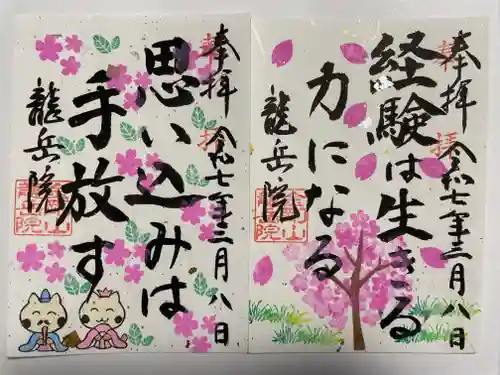 奉拝 令和七年三月八日
思い込みは
手放す
龍岳院
奉拝 令和七年三月八日
経験は生きる
力になる
龍岳院